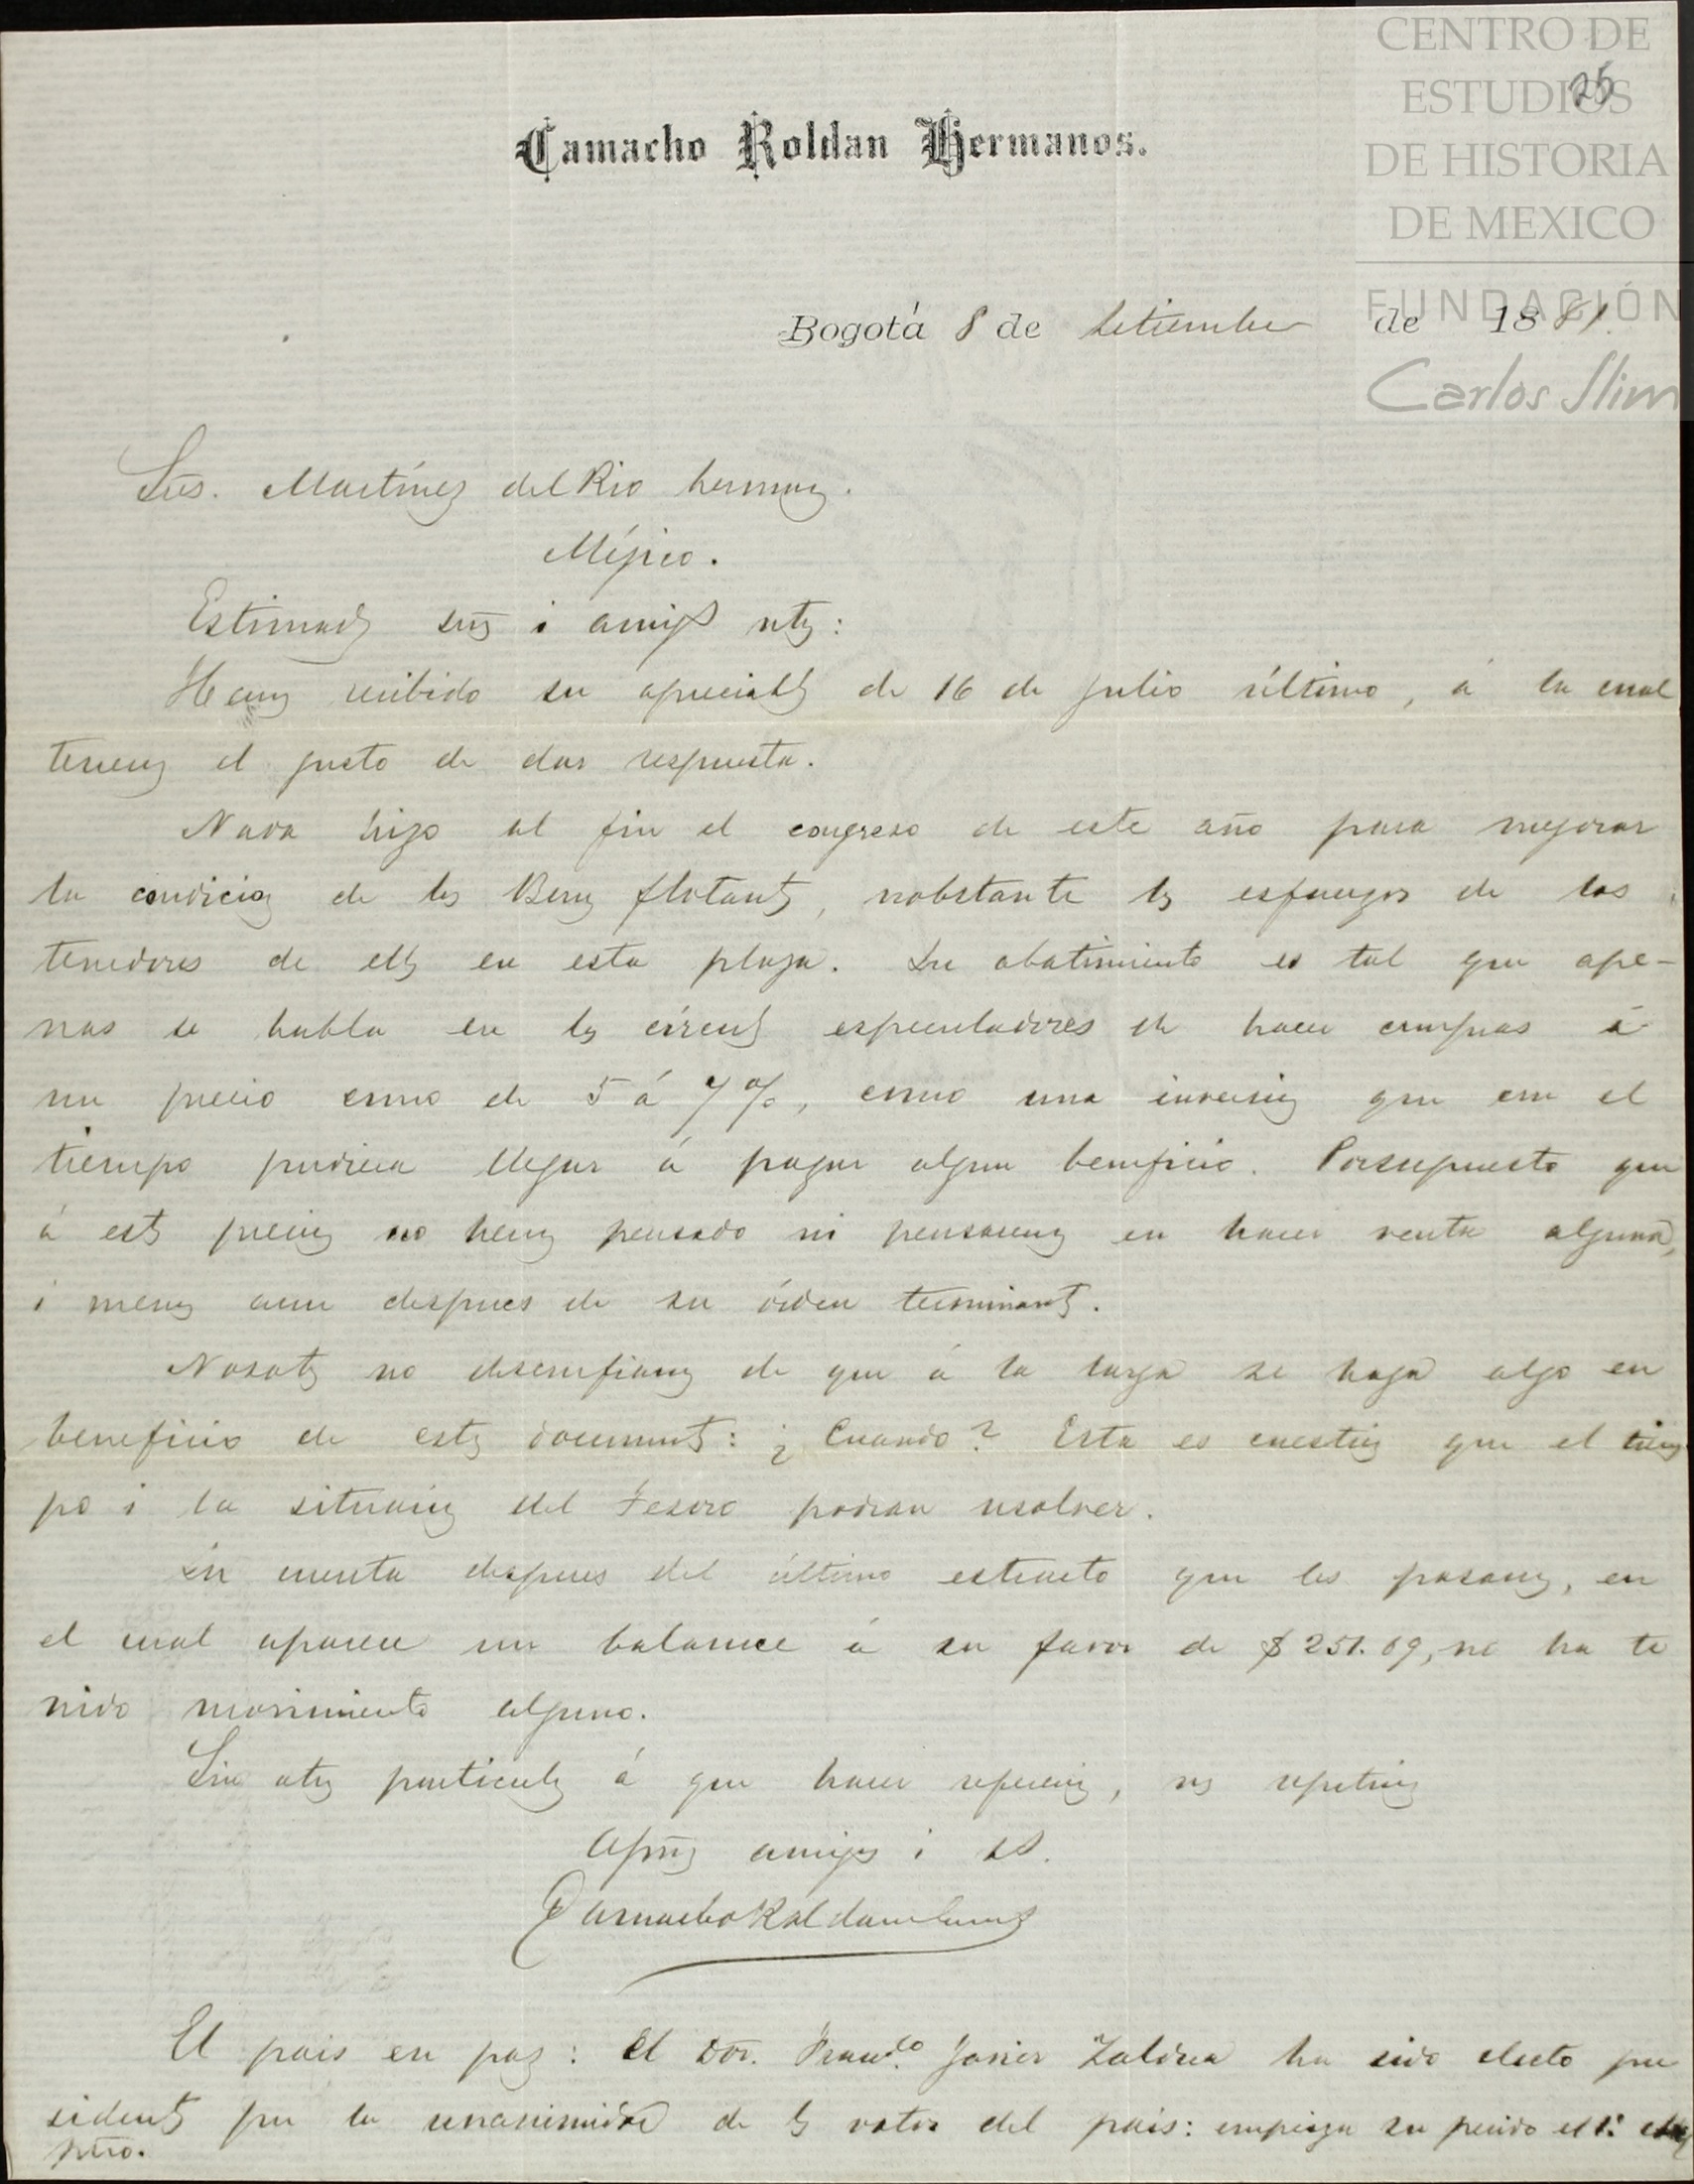 CENTRO DE
ESTUDIOS
DE HISTORIA
DE MEXICO
FUNDACIÓN
Carlos Slim
25
Camacho Roldan Hermanos.
Bogotá 8 de Setiembre de 1881.
Sres. Martínez del Rio hermanos.
Méjico.
Estimados sres i amigos ntros:
Hemos recibido su apreciable de 16 de julio último, á la cual
tenemos el gusto de dar respuesta.
Nada hizo al fin el congreso de este año para mejorar
la condicion de los Bonos flotantes, nobstante los esfuerzos de los
tenedores de ellos en esta plaza. Su abatimiento es tal que ape-
nas se habla en los círculos especuladores de hacer compras á
un precio como de 5 á 7%, como una inversion que con el
tiempo pudiera llegar á pagar algun beneficio. Porsupuesto que
á estos precios no hemos pensado ni pensaremos en hacer venta alguna,
i menos aun despues de su órden terminante.
Nosotros no desconfiamos de que á la larga se haga algo en
beneficio de estos documentos: ¿Cuando? Esta es cuestion que el tiem
po i la situacion del Tesoro podran resolver.
Su cuenta despues del último estracto que les pasamos, en
el cual aparece un balance á su favor de $251.69, no ha te
nido movimiento alguno.
Sin otros particulares á que hacer referencia, nos repetimos
Afmos amigos i SS.
Camacho Roldan hermanos
El pais en paz: El Dor. Franco. Javier Zaldua ha sido electo pre
sidente por la unanimidad de los votos del pais: empieza su periodo el 1º de